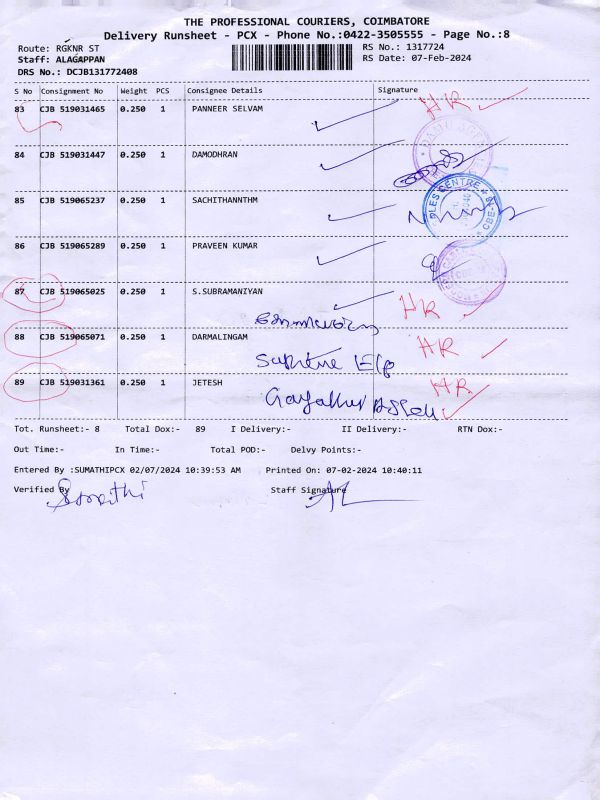 THE PROFESSIONAL COURIERS, COIMBATORE
Delivery Runsheet - PCX - Phone No.:0422-3505555 - Page No.:8
Route: RGKNR ST RS No.: 1317724
Staff: ALAGAPPAN RS Date: 07-Feb-2024
DRS No.: DCJB131772408
S No Consignment No Weight PCS Consignee Details Signature
83 CJB 519031465 0.250 1 PANNEER SELVAM HR
84 CJB 519031447 0.250 1 DAMODHRAN
85 CJB 519065237 0.250 1 SACHITHANNTHM
86 CJB 519065289 0.250 1 PRAVEEN KUMAR
87 CJB 519065025 0.250 1 S.SUBRAMANIYAN HR
88 CJB 519065071 0.250 1 DARMALINGAM HR
Supreme
89 CJB 519031361 0.250 1 JETESH HR
Tot. Runsheet:- 8 Total Dox:- 89 I Delivery:- II Delivery:- RTN Dox:-
Out Time:- In Time:- Total POD:- Delvy Points:-
Entered By :SUMATHIPCX 02/07/2024 10:39:53 AM Printed On: 07-02-2024 10:40:11
Verified By Staff Signature